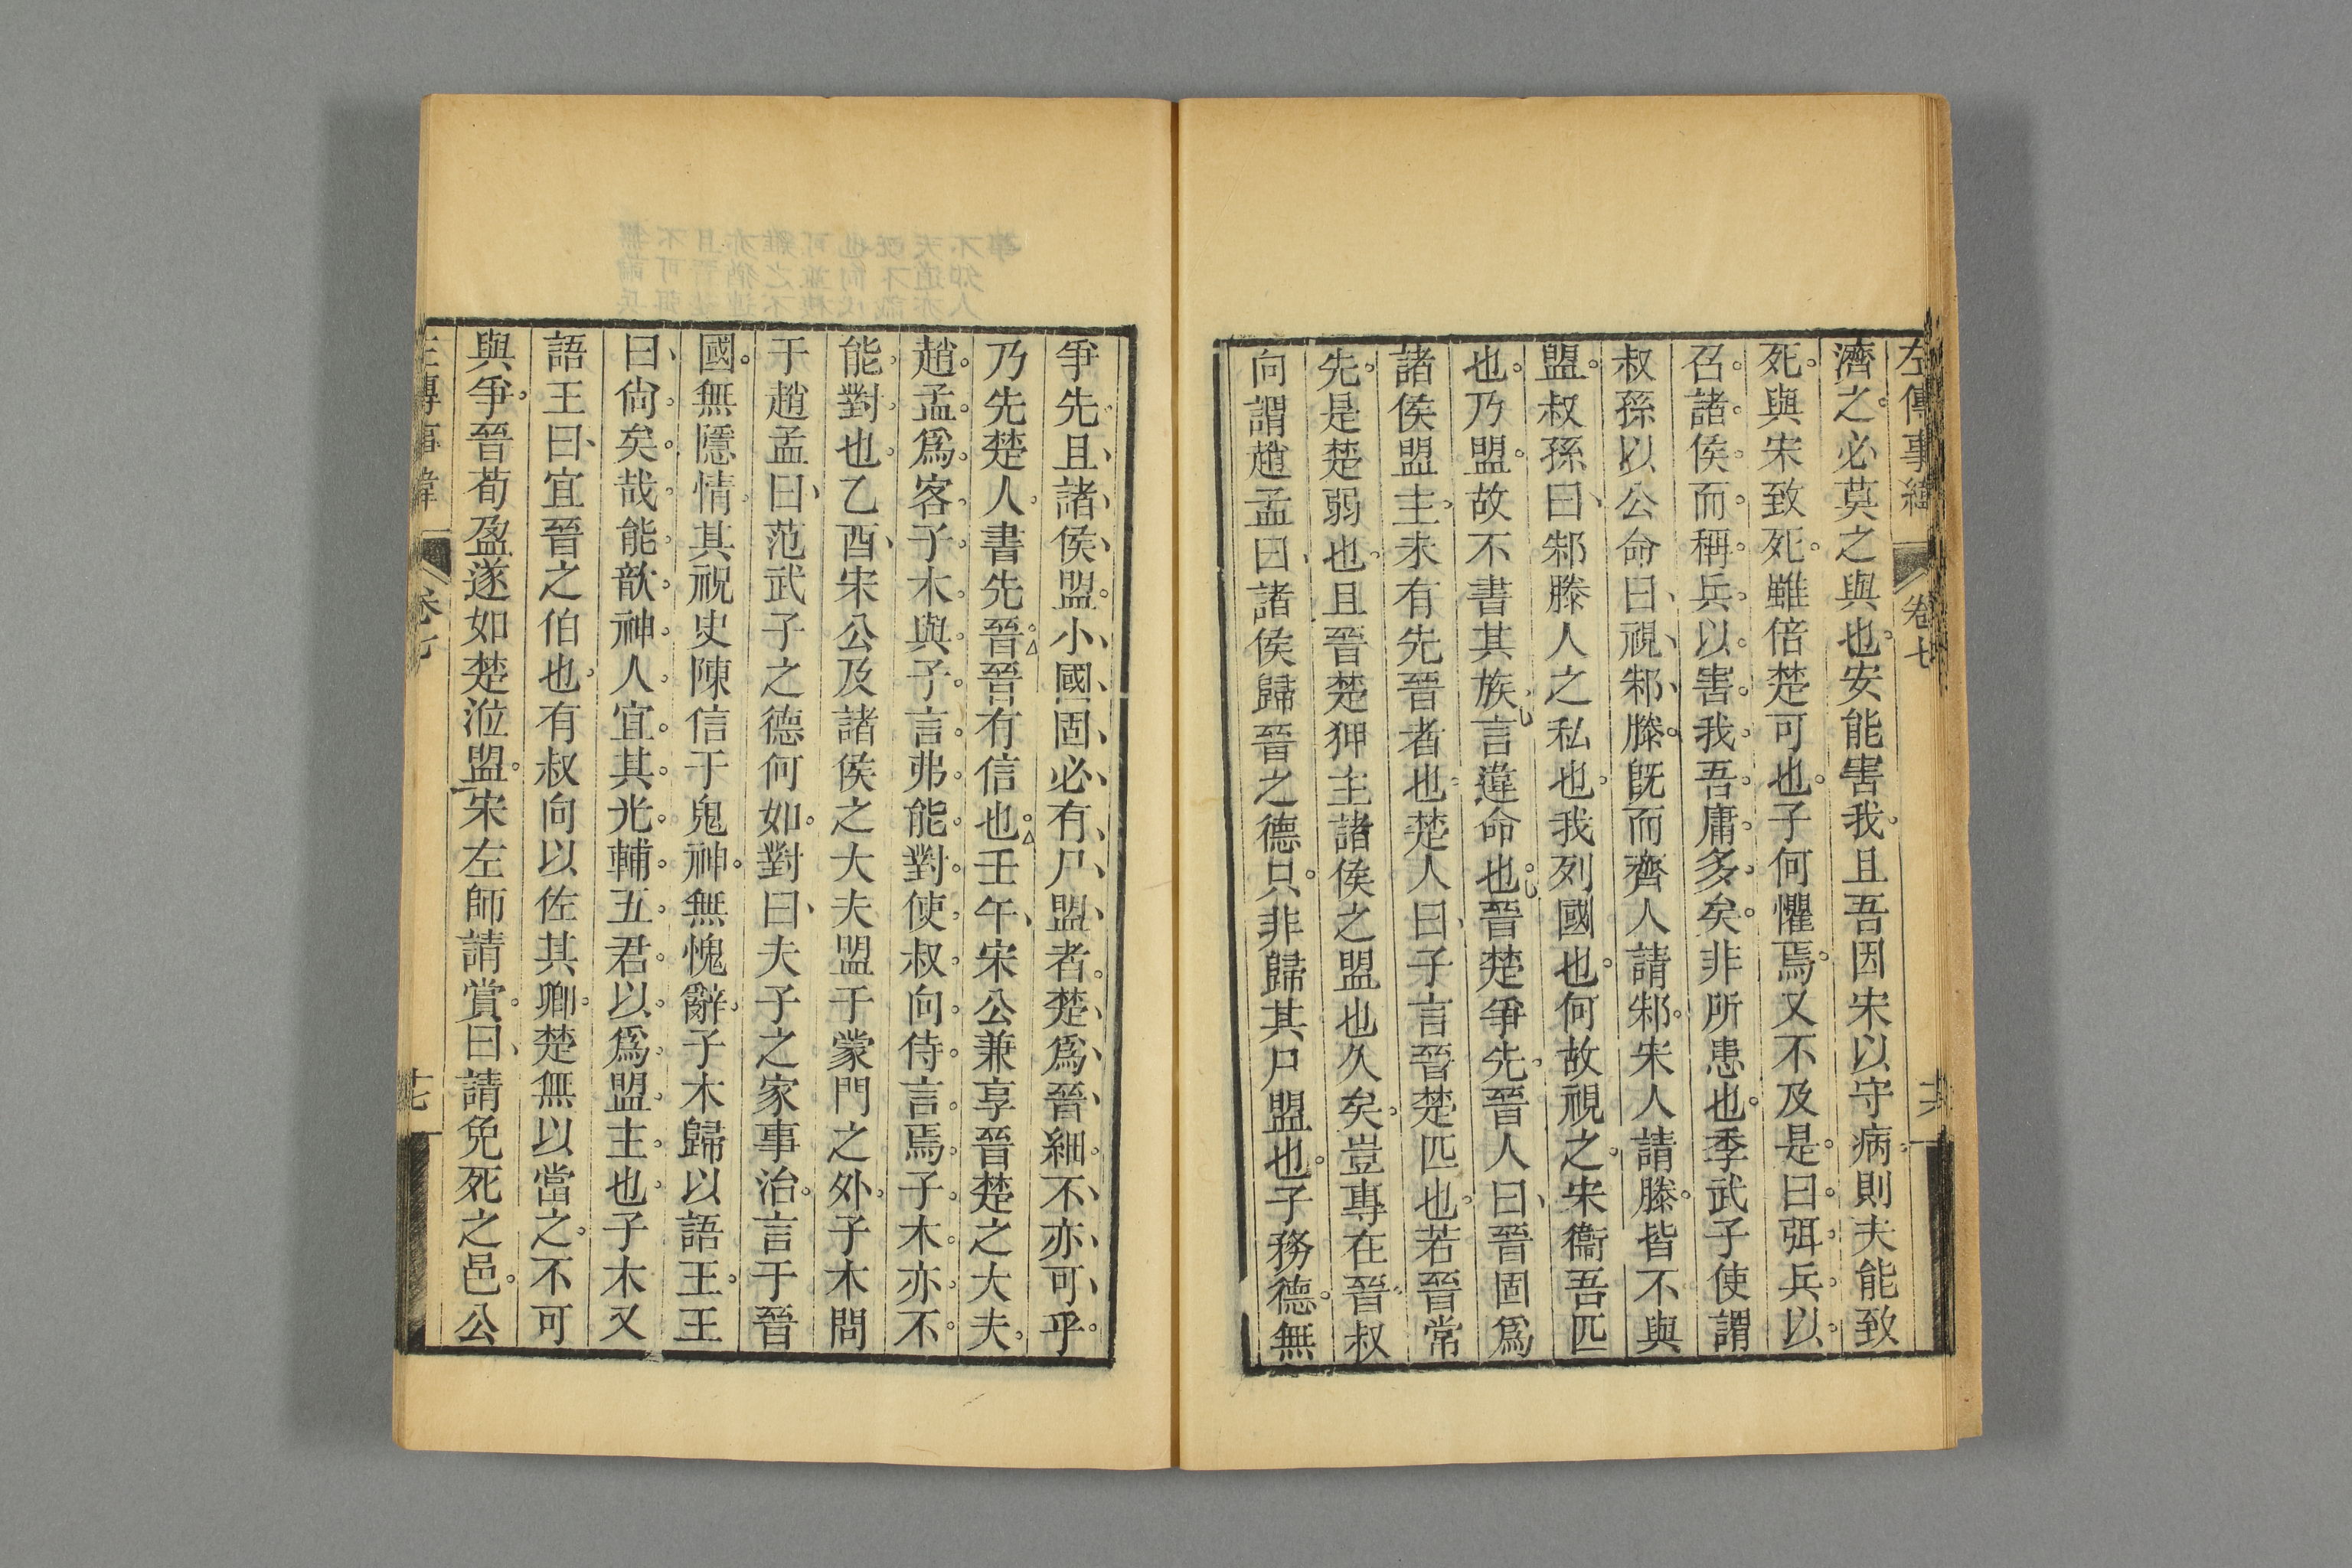 左傳事緯
卷七
濟之必莫之與也安能害我且吾因宋以守病則夫能致
死與宋致死雖倍楚可也子何懼焉又不及是曰弭兵以
召諸侯而稱兵以害我吾庸多矣非所患也季武子使謂
叔孫以公命曰視邾滕既而齊人請邾宋人請滕皆不與
盟叔孫曰邾滕人之私也我列國也何故視之宋衞吾匹
也乃盟故不書其族言違命也晉楚爭先晉人曰晉固爲
諸侯盟主未有先晉者也楚人曰子言晉楚匹也若晉常
先是楚弱也且晉楚狎主諸侯之盟也久矣豈專在晉叔
向謂趙孟曰諸侯歸晉之德只非歸其尸盟也子務德無
爭先且諸侯盟小國固必有尸盟者楚爲晉細不亦可乎
乃先楚人書先晉晉有信也壬午宋公兼享晉楚之大夫
趙孟爲客子木與子言弗能對使叔向侍言焉子木亦不
能對也乙酉宋公及諸侯之大夫盟于蒙門之外子木問
于趙孟曰范武子之德何如對曰夫子之家事治言于晉
國無隱情其祝史陳信于鬼神無愧辭子木歸以語王王
曰尙矣哉能歆神人宜其光輔五君以爲盟主也子木又
語王曰宜晉之伯也有叔向以佐其卿楚無以當之不可
與爭晉荀盈遂如楚涖盟宋左師請賞曰請免死之邑公